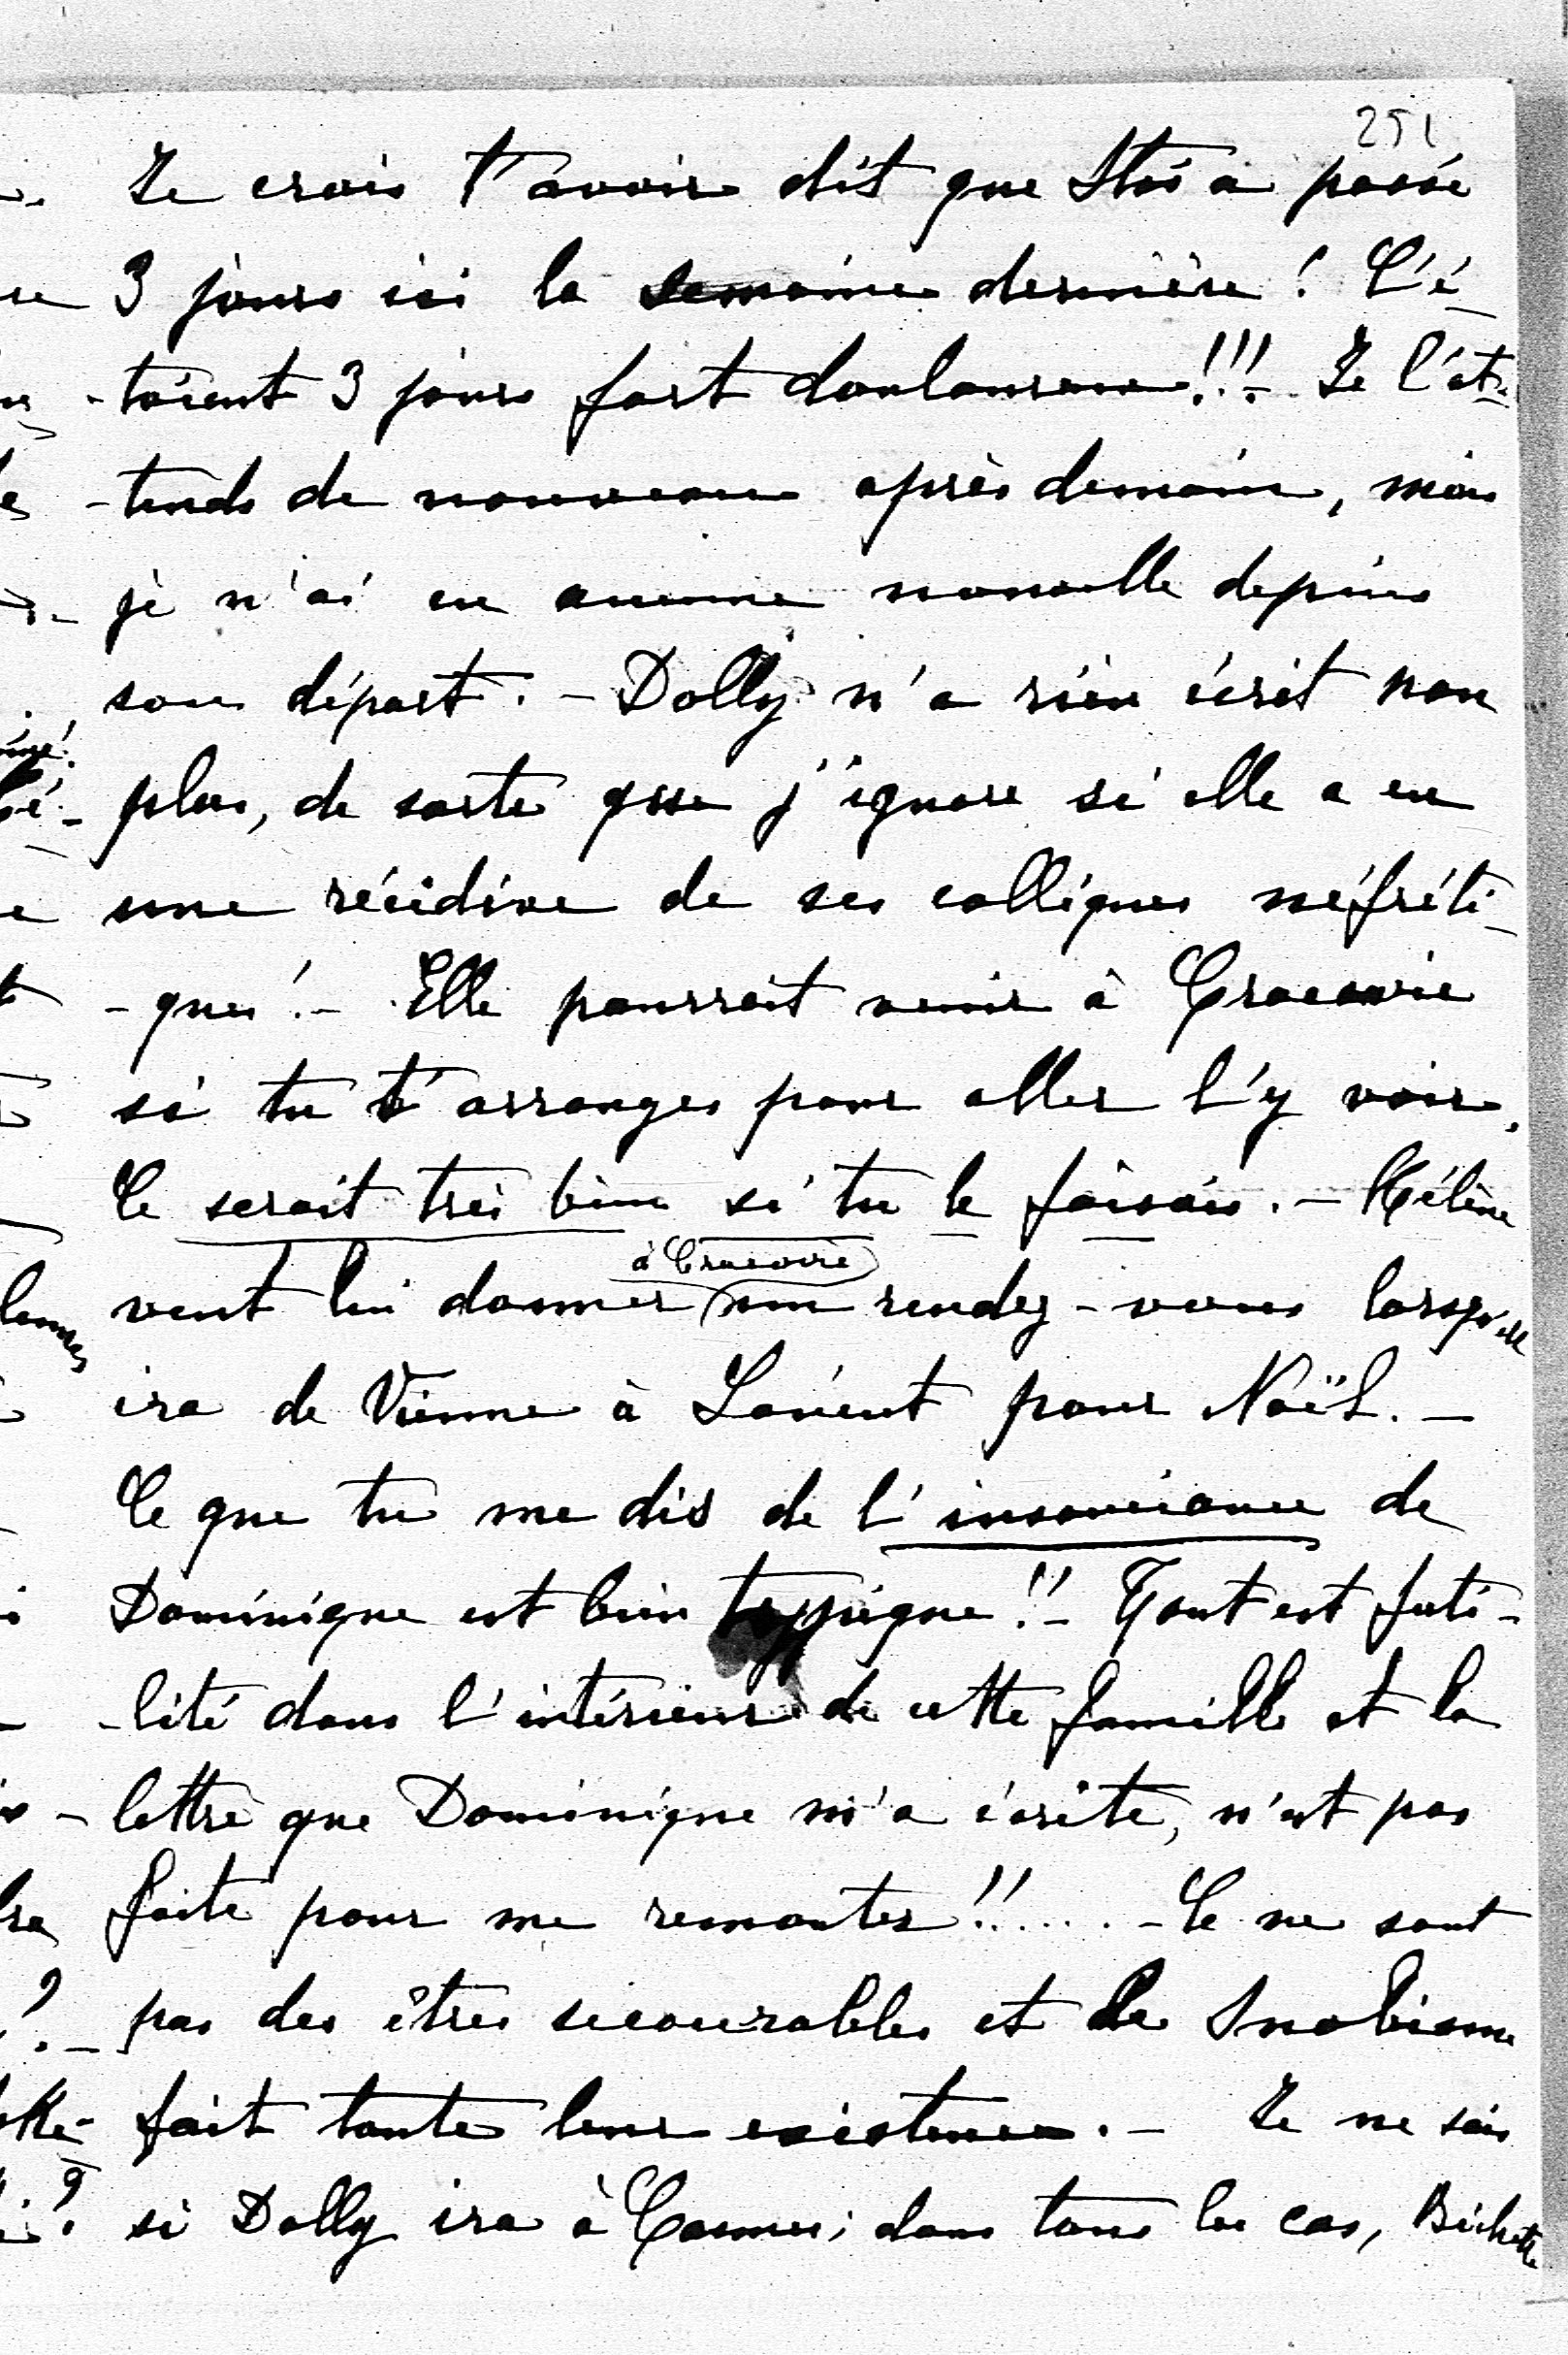 251
Je crois t'avoir dit que Stas a passé
3 jours ici la semaine dernière! C'é-
-taient 3 jours fort douloureux!!!- Je l'at-
-tends de nouveau après demain, mais
je n'ai eu aucune nouvelle depuis
son départ. - Dolly n'a rien écrit non
plus, de sorte que j'ignore si elle a eu
une récidive de ses colliques néfréti-
-ques!- Elle pourrait venir à Cracovie
si tu t'arranges pour aller l'y voir.
Ce serait très bien si tu le faisais. - Hélène
à Cracovie
veut lui donner un rendez-vous lorsqu'elle
ira de Vienne à Lancut pour Noël. -
Ce que tu me dis de l'insouciance de
Dominique est bien typpique!!- Tout est futi-
-lité dans l'intérieur de cette famille et la
lettre que Dominique m'a écrite, n'est pas
faite pour me remonter!!..... - Ce ne sont
pas des êtres secourables et le Snobisme
fait toute leur existence. - Je ne sais
si Dolly ira à Cannes; dans tous les cas, Bichette